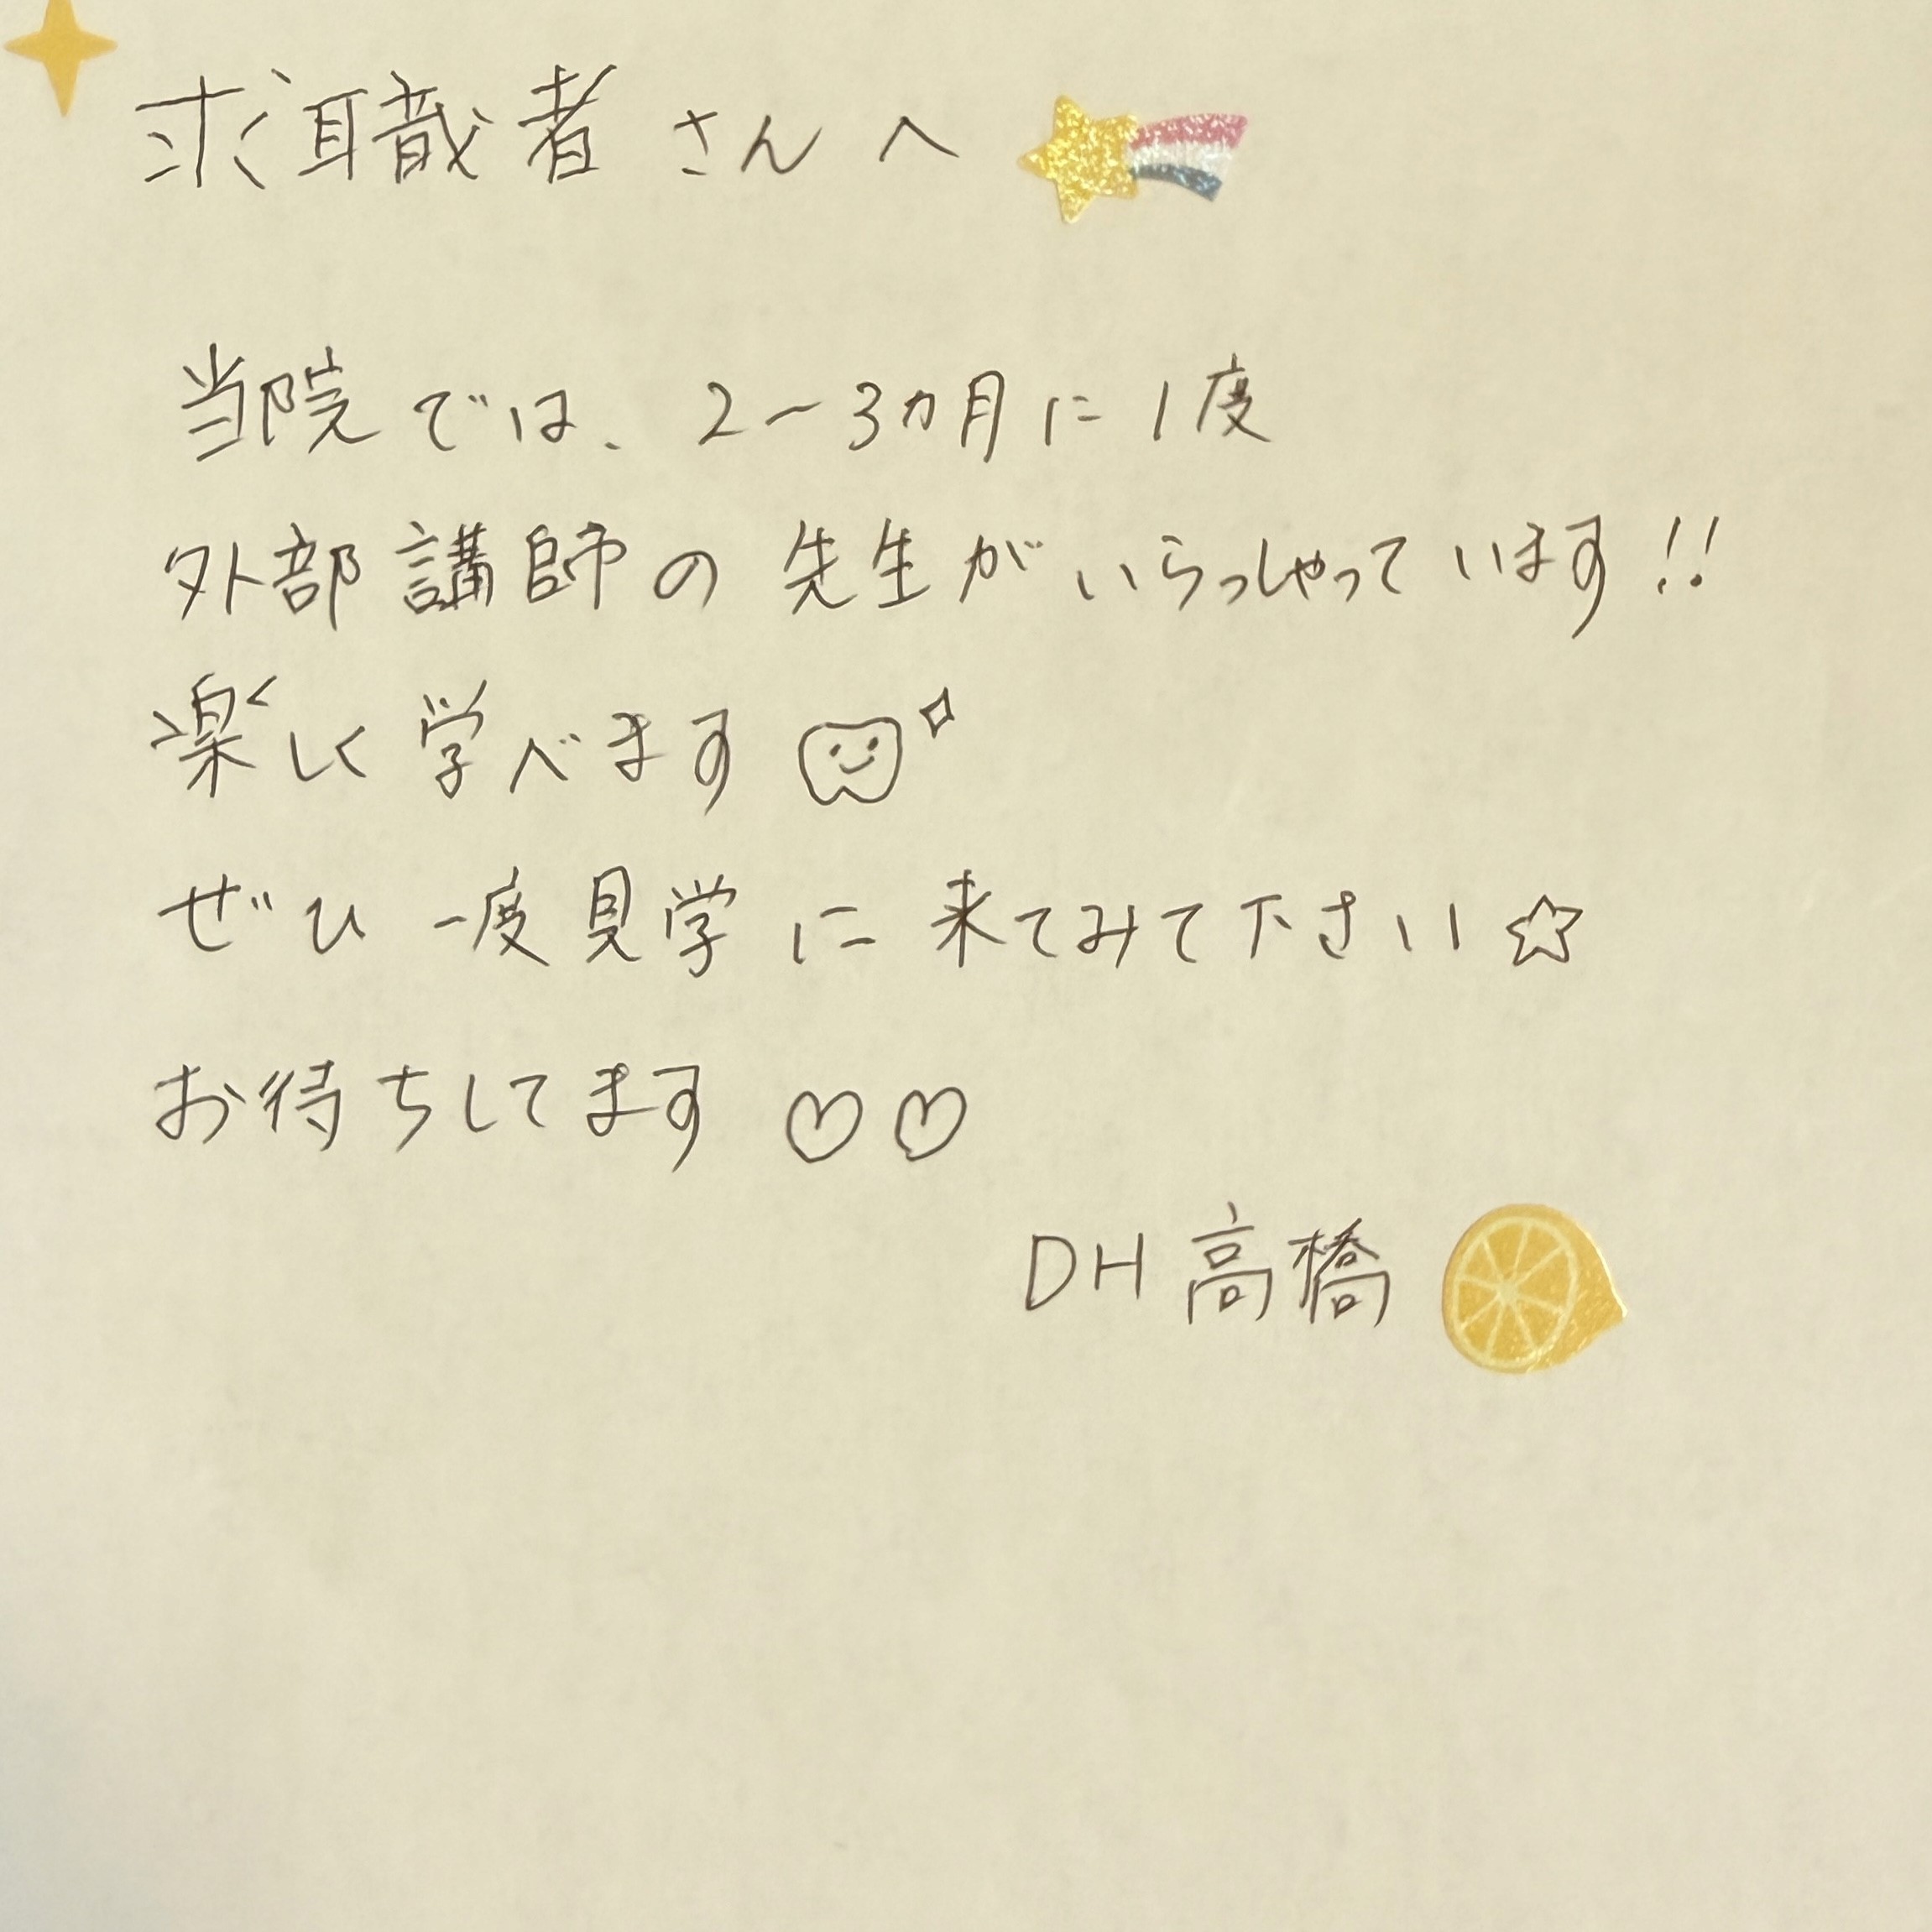 求職者さんへ
当院では、2〜3ヵ月に1度
外部講師の先生がいらっしゃっています!!
楽しく学べます
ぜひ一度見学に来てみて下さい☆
お待ちしてます♡♡
DH高橋